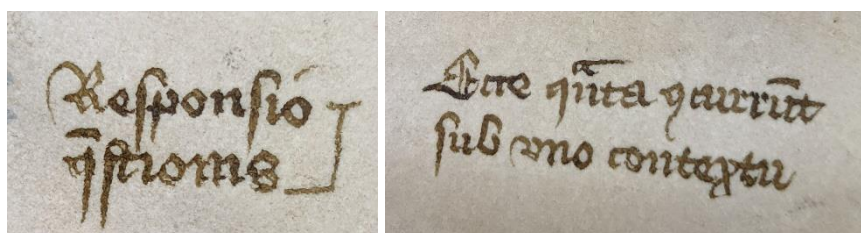 Responsio
q̄stionis
Ecce qᵃnta ꝯcurrūt
sub vno contextu